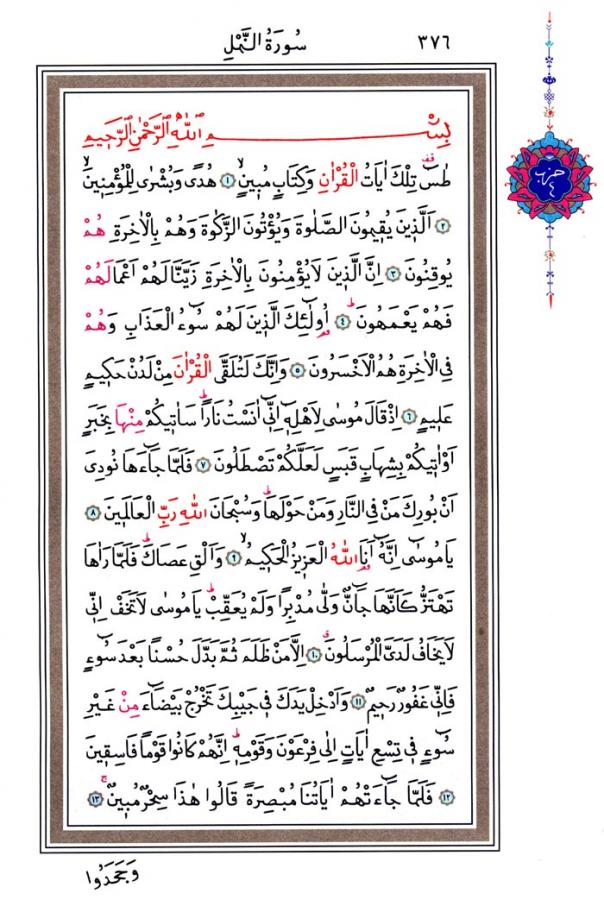 سُورَةُ النَّمْلِ ٣٧٦
بِسْمِ اللّٰهِ الرَّحْمٰنِ الرَّحِيمِ
حزب ٤
طٰسٓ تِلْكَ اٰيَاتُ الْقُرْاٰنِ وَكِتَابٍ مُبِينٍۙ ﴿١﴾ هُدًى وَبُشْرٰى لِلْمُؤْمِنِينَۙ
﴿٢﴾ اَلَّذِينَ يُقِيمُونَ الصَّلٰوةَ وَيُؤْتُونَ الزَّكٰوةَ وَهُمْ بِالْاٰخِرَةِ هُمْ
يُوقِنُونَ ﴿٣﴾ اِنَّ الَّذِينَ لَا يُؤْمِنُونَ بِالْاٰخِرَةِ زَيَّنَّا لَهُمْ اَعْمَالَهُمْ
فَهُمْ يَعْمَهُونَۜ ﴿٤﴾ اُو۬لٰٓئِكَ الَّذِينَ لَهُمْ سُوٓءُ الْعَذَابِ وَهُمْ
فِي الْاٰخِرَةِ هُمُ الْاَخْسَرُونَ ﴿٥﴾ وَاِنَّكَ لَتُلَقَّى الْقُرْاٰنَ مِنْ لَدُنْ حَكِيمٍ
عَلِيمٍ ﴿٦﴾ اِذْ قَالَ مُوسٰى لِاَهْلِهٖٓ اِنّٖٓي اٰنَسْتُ نَاراًۜ سَاٰتِيكُمْ مِنْهَا بِخَبَرٍ
اَوْ اٰتِيكُمْ بِشِهَابٍ قَبَسٍ لَعَلَّكُمْ تَصْطَلُونَ ﴿٧﴾ فَلَمَّا جَٓاءَهَا نُودِيَ
اَنْ بُورِكَ مَنْ فِي النَّارِ وَمَنْ حَوْلَهَاۜ وَسُبْحَانَ اللّٰهِ رَبِّ الْعَالَمِينَ ﴿٨﴾
يَا مُوسٰٓى اِنَّهُٓ اَنَا اللّٰهُ الْعَزِيزُ الْحَكِيمُۙ ﴿٩﴾ وَاَلْقِ عَصَاكَۜ فَلَمَّا رَاٰهَا
تَهْتَزُّ كَاَنَّهَا جَٓانٌّ وَلّٰى مُدْبِراً وَلَمْ يُعَقِّبْۜ يَا مُوسٰى لَا تَخَفْ اِنّٖي
لَا يَخَافُ لَدَيَّ الْمُرْسَلُونَۗ ﴿١٠﴾ اِلَّا مَنْ ظَلَمَ ثُمَّ بَدَّلَ حُسْناً بَعْدَ سُٓوءٍ
فَاِنّٖي غَفُورٌ رَحِيمٌ ﴿١١﴾ وَاَدْخِلْ يَدَكَ فِي جَيْبِكَ تَخْرُجْ بَيْضَٓاءَ مِنْ غَيْرِ
سُٓوءٍ فِي تِسْعِ اٰيَاتٍ اِلٰى فِرْعَوْنَ وَقَوْمِهٖۜ اِنَّهُمْ كَانُوا قَوْماً فَاسِقِينَ
﴿١٢﴾ فَلَمَّا جَٓاءَتْهُمْ اٰيَاتُنَا مُبْصِرَةً قَالُوا هٰذَا سِحْرٌ مُبِينٌۚ ﴿١٣﴾
وَجَحَدُوا